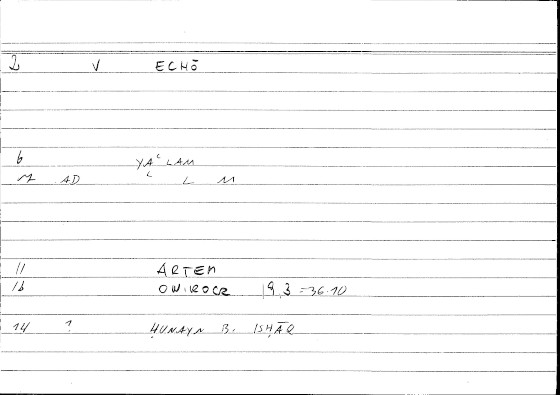 2 V ECHŌ
6 YAʿLAM
M AD L L M
11 ARTEM
12 ONIROCR 19,3 = 36.10
14 1 ḤUNAYN B. ISḤĀQ